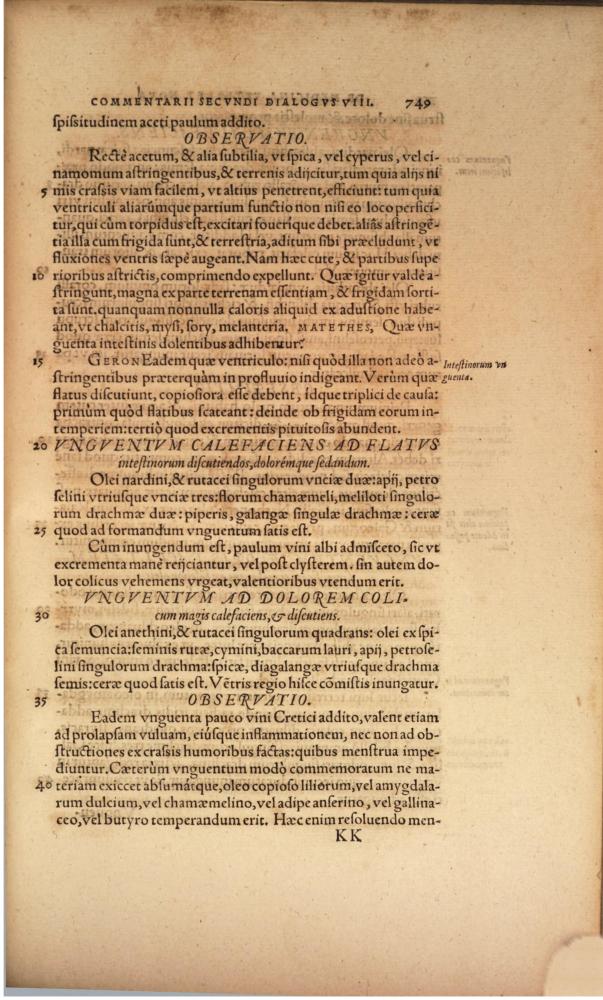 COMMENTARII SECVNDI DIALOGVS VIII. 749
ſpiſſitudinem aceti paulum addito.
OBSERVATIO.
Rectè acetum, & alia ſubtilia, vt ſpica, vel cyperus, vel ci-
namomum aſtringentibus, & terrenis adijcitur, tum quia alijs ni
5 mis craſsis viam facilem, vt altius penetrent, efficiunt: tum quia
ventriculi aliarúmque partium functio non niſi eo loco perfici-
tur, qui cùm torpidus eſt, excitari fouerique debet. aliàs aſtringē-
tia illa cum frigida ſunt, & terreſtria, aditum ſibi præcludunt, vt
fluxiones ventris ſæpè augeant. Nam hæc cute, & partibus ſupe
10 rioribus aſtrictis, comprimendo expellunt. Quæ igitur valdè a-
ſtringunt, magna ex parte terrenam eſſentiam, & frigidam ſorti-
ta ſunt. quanquam nonnulla caloris aliquid ex aduſtione habe-
ant, vt chalcitis, myſi, ſory, melanteria. MATETHES. Quæ vn-
guenta inteſtinis dolentibus adhibentur?
15 GERON Eadem quæ ventriculo: niſi quòd illa non adeò a-
Inteſtinorum vn
ſtringentibus præterquàm in profluuio indigeant. Verùm quæ
guenta.
flatus diſcutiunt, copioſiora eſſe debent, idque triplici de cauſa:
primùm quòd flatibus ſcateant: deinde ob frigidam eorum in-
temperiem: tertiò quod excrementis pituitoſis abundent.
20 VNGVENTVM CALEFACIENS AD FLATVS
inteſtinorum diſcutiendos, dolorémque ſedandum.
Olei nardini, & rutacei ſingulorum vnciæ duæ: apij, petro
ſelini vtriuſque vnciæ tres: florum chamæmeli, meliloti ſingulo-
rum drachmæ duæ: piperis, galangæ ſingulæ drachmæ: ceræ
25 quod ad formandum vnguentum ſatis eſt.
Cùm inungendum eſt, paulum vini albi admiſceto, ſic vt
excrementa manè reijciantur, vel poſt clyſterem. ſin autem do-
lor colicus vehemens vrgeat, valentioribus vtendum erit.
VNGVENTVM AD DOLOREM COLI-
30 cum magis calefaciens, & diſcutiens.
Olei anethini, & rutacei ſingulorum quadrans: olei ex ſpi-
ca ſemuncia: ſeminis rutæ, cymini, baccarum lauri, apij, petroſe-
lini ſingulorum drachma: ſpicæ, diagalangæ vtriuſque drachma
ſemis: ceræ quod ſatis eſt. Vētris regio hiſce cōmiſtis inungatur.
35 OBSERVATIO.
Eadem vnguenta pauco vini Cretici addito, valent etiam
ad prolapſam vuluam, eiúſque inflammationem, nec non ad ob-
ſtructiones ex craſsis humoribus factas: quibus menſtrua impe-
diuntur. Cæterùm vnguentum modò commemoratum ne ma-
40 teriam exiccet abſumátque, oleo copioſo liliorum, vel amygdala-
rum dulcium, vel chamæmelino, vel adipe anſerino, vel gallina-
ceo, vel butyro temperandum erit. Hæc enim reſoluendo men-
KK